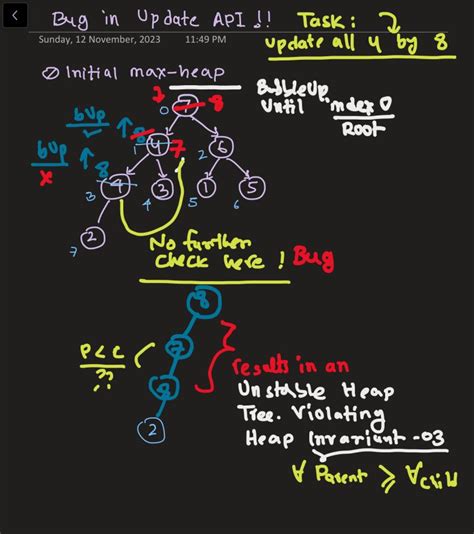 Bug in Update API !!
Task:
update all 4 by 8
Sunday, 12 November, 2023 11:49 PM
Initial max-heap
BubbleUp
Until index 0
Root
bUp
bUp
x
8
8
0 7 8
1 4 7
2 6
3 4
4 3
5 1
6 5
7 2
No further
check here !
Bug
8
P<C
??
7
8
2
results in an
Unstable Heap
Tree. Violating
Heap Invariant -03
∀ Parent ≥ ∀ Child